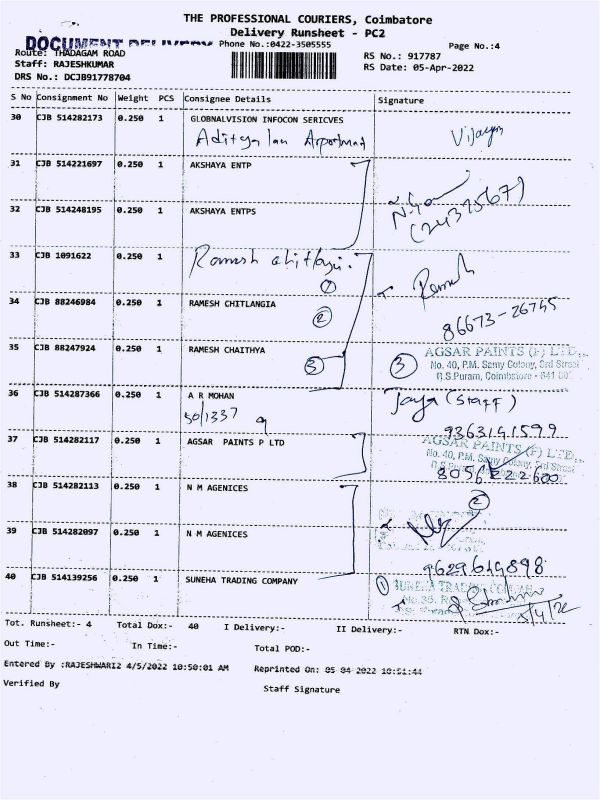 THE PROFESSIONAL COURIERS, Coimbatore
Delivery Runsheet - PC2
DOCUMENT DELIVERY Phone No.:0422-3505555 Page No.:4
Route: THADAGAM ROAD RS No.: 917787
Staff: RAJESHKUMAR RS Date: 05-Apr-2022
DRS No.: DCJB91778704
S No Consignment No Weight PCS Consignee Details Signature
30 CJB 514282173 0.250 1 GLOBNALVISION INFOCON SERICVES
31 CJB 514221697 0.250 1 AKSHAYA ENTP
32 CJB 514248195 0.250 1 AKSHAYA ENTPS
33 CJB 1091622 0.250 1 Ramesh chitlangi.
① Ramesh
34 CJB 88246984 0.250 1 RAMESH CHITLANGIA
② 86673-26745
35 CJB 88247924 0.250 1 RAMESH CHAITHYA
③ ③ AGSAR PAINTS (P) LTD.,
No. 40, P.M. Samy Colony, 3rd Street
R.S.Puram, Coimbatore - 641 00
36 CJB 514287366 0.250 1 A R MOHAN Jaya (Staff)
50/1337 9363141599
37 CJB 514282117 0.250 1 AGSAR PAINTS P LTD
AGSAR PAINTS (P) LTD.,
No. 40, P.M. Samy Colony, 3rd Street
38 CJB 514282113 0.250 1 N M AGENICES
②
39 CJB 514282097 0.250 1 N M AGENICES
9629619898
40 CJB 514139256 0.250 1 SUNEHA TRADING COMPANY ①
Tot. Runsheet:- 4 Total Dox:- 40 I Delivery:- II Delivery:- RTN Dox:-
Out Time:- In Time:- Total POD:-
Entered By :RAJESHWARI2 4/5/2022 10:50:01 AM Reprinted On: 05-04-2022 10:51:44
Verified By Staff Signature